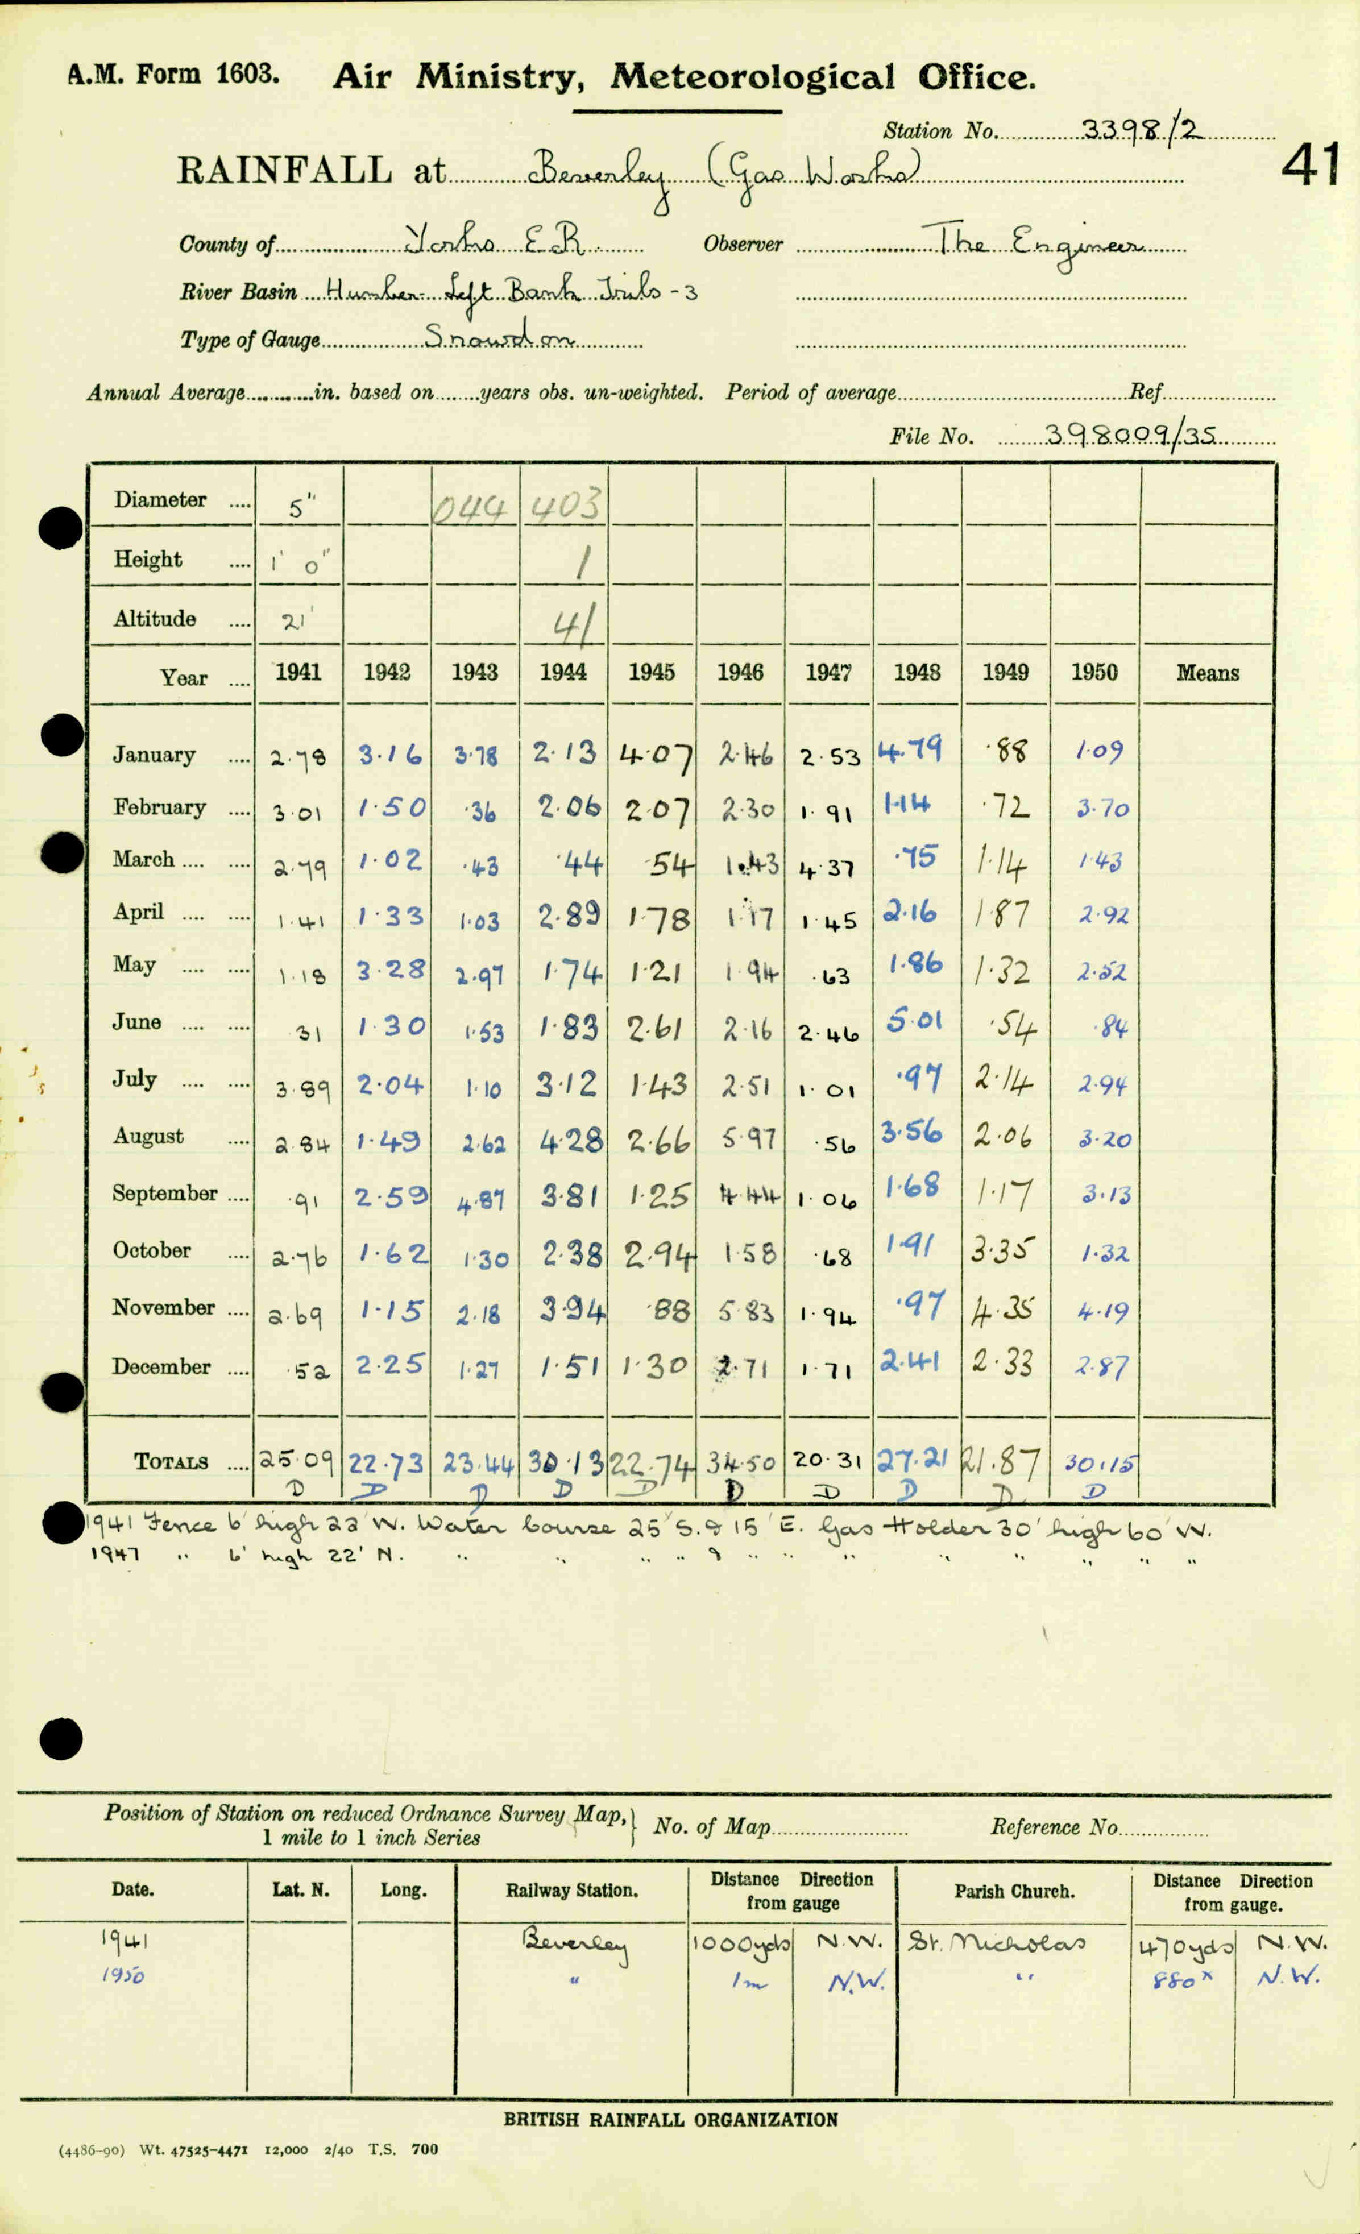 A.M. Form 1603. Air Ministry, Meteorological Office.
Station No. 3398/2
41
RAINFALL at Beverley (Gas Works)
County of Yorks E.R. Observer The Engineer
River Basin Humber Left Bank Tribs - 3
Type of Gauge Snowdon
Annual Average in. based on years obs. un-weighted. Period of average Ref.
File No. 398009/35
Diameter .... 5" 044 403
Height .... 1' 0" 1
Altitude .... 21' 41
Year .... 1941 1942 1943 1944 1945 1946 1947 1948 1949 1950 Means
January .... 2.78 3.16 3.78 2.13 4.07 2.46 2.53 4.79 .88 1.09
February .... 3.01 1.50 .36 2.06 2.07 2.30 1.91 1.14 .72 3.70
March .... .... 2.79 1.02 .43 .44 .54 1.43 4.37 .75 1.14 1.43
April .... .... 1.41 1.33 1.03 2.89 1.78 1.17 1.45 2.16 1.87 2.92
May .... .... 1.18 3.28 2.97 1.74 1.21 1.94 .63 1.86 1.32 2.52
June .... .... .31 1.30 1.53 1.83 2.61 2.16 2.46 5.01 .54 .84
July .... .... 3.89 2.04 1.10 3.12 1.43 2.51 1.01 .97 2.14 2.94
August .... 2.84 1.49 2.62 4.28 2.66 5.97 .56 3.56 2.06 3.20
September .... .91 2.59 4.87 3.81 1.25 4.44 1.06 1.68 1.17 3.13
October .... 2.76 1.62 1.30 2.38 2.94 1.58 .68 1.91 3.35 1.32
November .... 2.69 1.15 2.18 3.94 .88 5.83 1.94 .97 4.35 4.19
December .... .52 2.25 1.27 1.51 1.30 2.71 1.71 2.41 2.33 2.87
TOTALS .... 25.09 22.73 23.44 30.13 22.74 34.50 20.31 27.21 21.87 30.15
D D D D D D D D D D
1941 Fence 6' high 22' W. Water Course 25' S. & 15' E. Gas Holder 30' high 60' W.
1947 " 6' high 22' N. " " " " & " " " " " " " "
Position of Station on reduced Ordnance Survey Map, 1 mile to 1 inch Series } No. of Map Reference No.
Date. Lat. N. Long. Railway Station. Distance Direction from gauge Parish Church. Distance Direction from gauge.
1941 Beverley 1000yds N.W. St. Nicholas 470yds N.W.
1950 " 1m N.W. " 880x N.W.
BRITISH RAINFALL ORGANIZATION
(4486-90) Wt. 47525-4471 12,000 2/40 T.S. 700